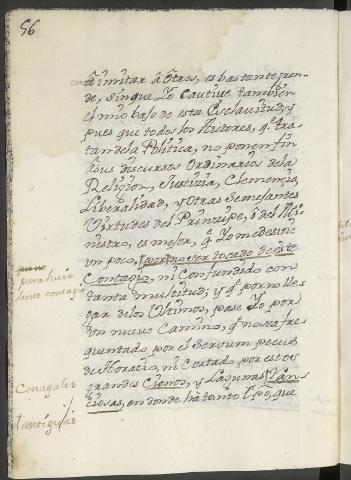 56
â imitar â otros, es bastante gran-
de, sin que Yo Cautive tambien
el mio bajo de esta Esclavitud; y
pues que todos los Autores, qe. tra-
tan de la Politica, no ponen fin
â sus discursos Ordinarios de la
Religion, Justizia, Clemencia,
Liberalidad, y otras Semejantes
Virtudes del Prinzipe, ô del Mi-
nistro, es mejor, qe. Yo me desvie
un poco, por no ser tocado de este
Contagio, ni Confundido con
tanta multitud; y qe. por no lle-
gar de los Ultimos, pase Yo por
un nuevo Camino, qe. no sea fre-
quentado por el Servum pecus
de Horacio, ni Cortado por estos
grandes Cienos, y Lagunas Ran-
ciosas, en donde hà tanto tpõ, que
para huir
de este contagio
Cenagales
antiguas